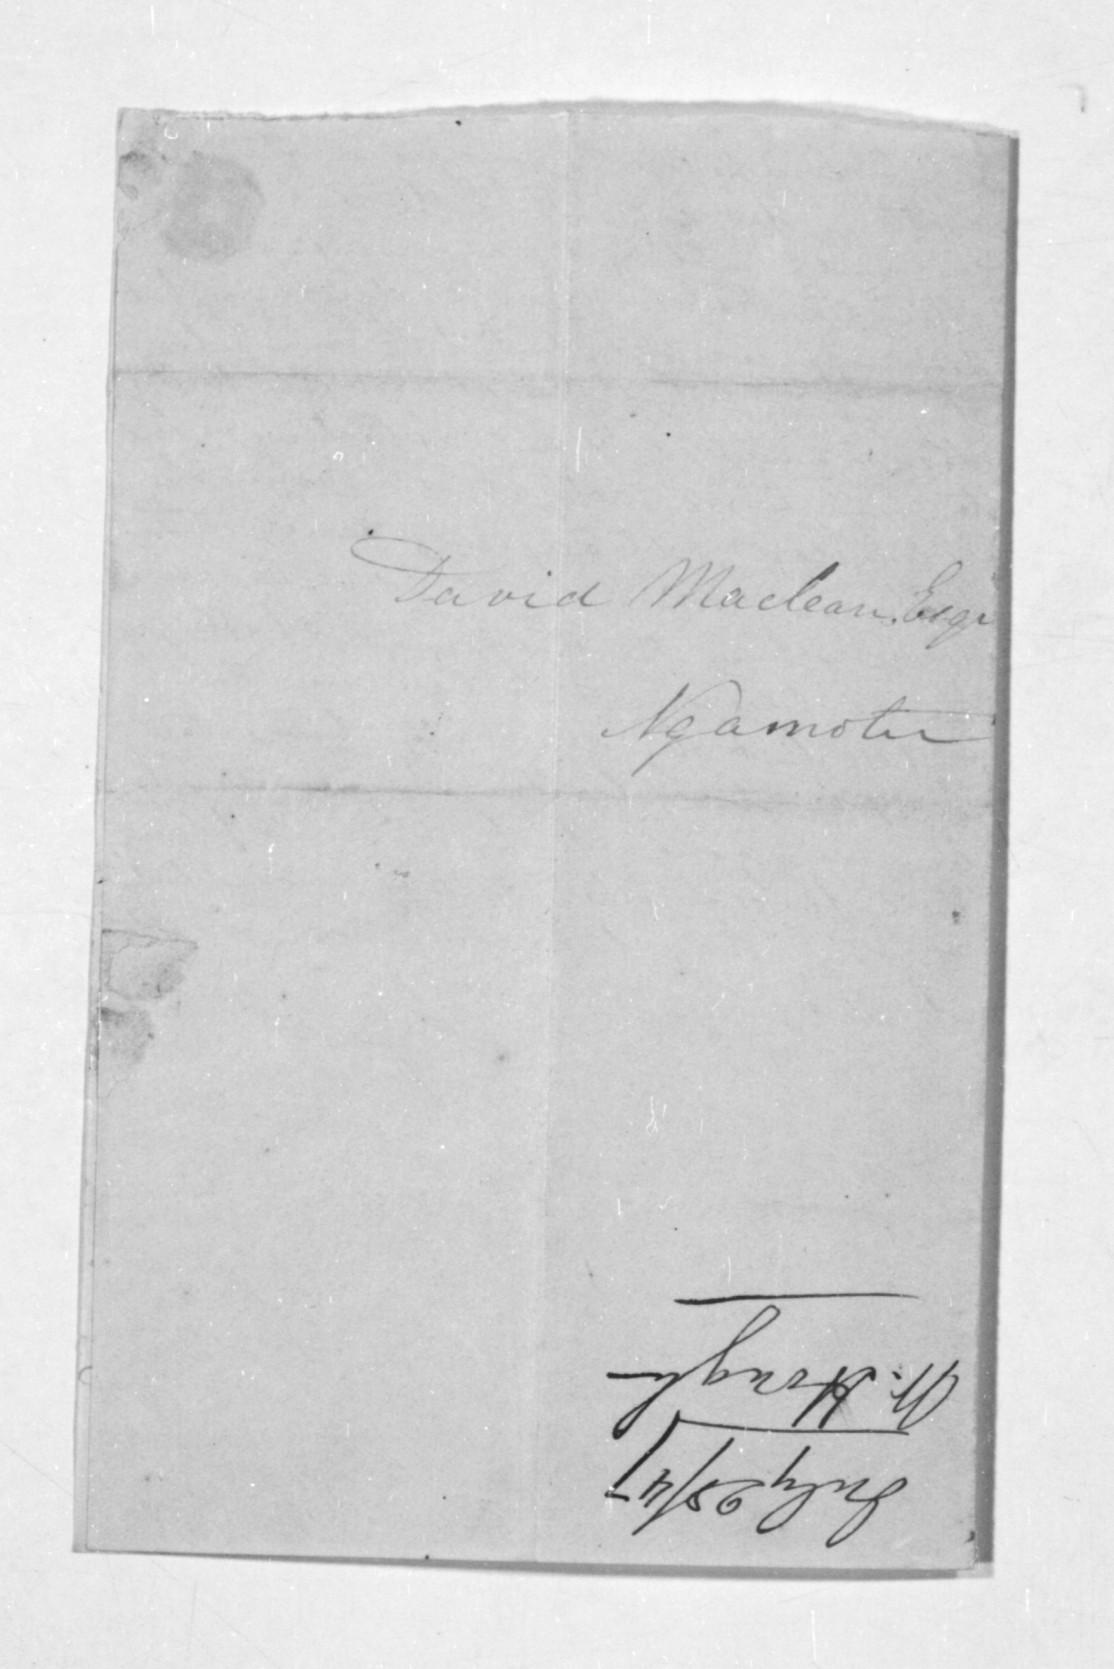 David Maclean, Esqr
Ngamotu
July 25/47
W. Hough